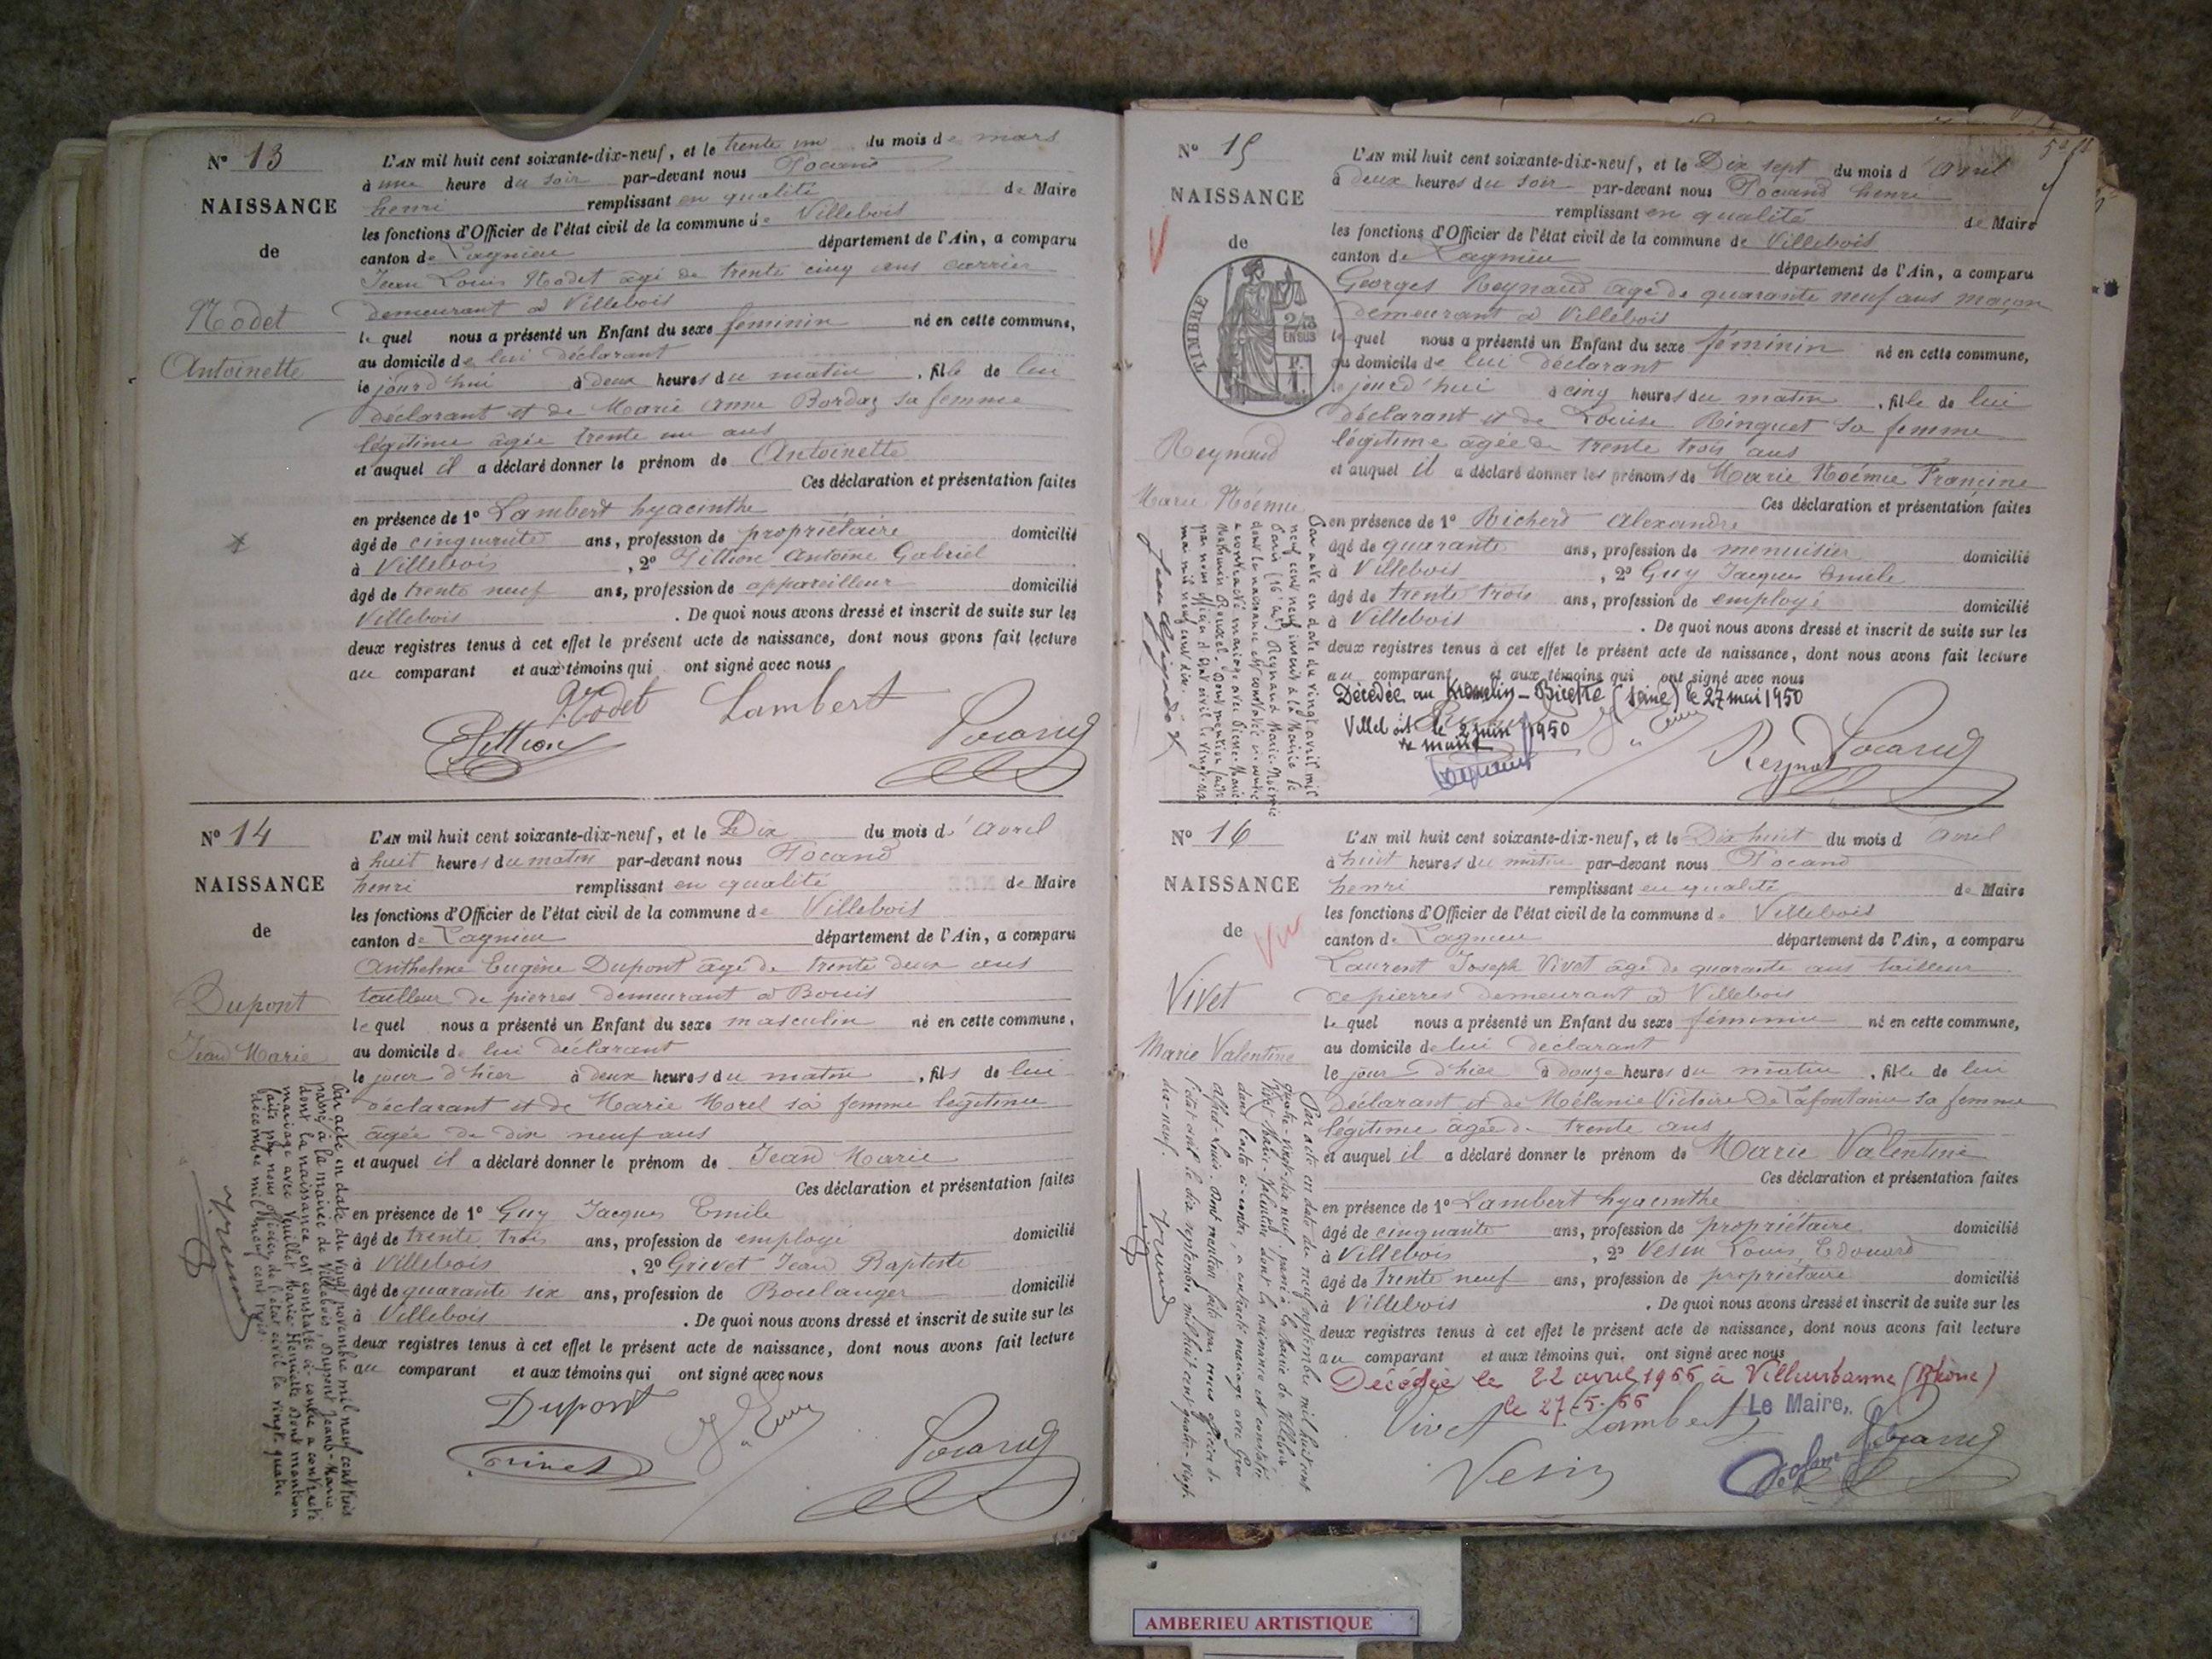 N° 13
NAISSANCE
de
Nodet
Antoinette
L'AN mil huit cent soixante-dix-neuf, et le trente un du mois de mars
à une heure du soir par-devant nous Pocand
henri remplissant en qualité de Maire
les fonctions d'Officier de l'état civil de la commune de Villebois
canton de Lagnieu département de l'Ain, a comparu
Jean Louis Nodet âgé de trente cinq ans carrier
demeurant à Villebois
le quel nous a présenté un Enfant du sexe féminin né en cette commune,
au domicile de lui déclarant
le jourd'hui à deux heures du matin, fille de lui
déclarant et de Marie Anne Bordaz sa femme
légitime âgée trente un ans
et auquel il a déclaré donner le prénom de Antoinette
Ces déclaration et présentation faites
en présence de 1° Lambert hyacinthe
âgé de cinquante ans, profession de propriétaire domicilié
à Villebois, 2° Pittion Antoine Gabriel
âgé de trente neuf ans, profession de appareilleur domicilié
Villebois. De quoi nous avons dressé et inscrit de suite sur les
deux registres tenus à cet effet le présent acte de naissance, dont nous avons fait lecture
au comparant et aux témoins qui ont signé avec nous
Nodet Lambert
Pittion Pocand
N° 14
NAISSANCE
de
Dupont
Jean Marie
L'AN mil huit cent soixante-dix-neuf, et le Dix du mois d'avril
à huit heures du matin par-devant nous Pocand
henri remplissant en qualité de Maire
les fonctions d'Officier de l'état civil de la commune de Villebois
canton de Lagnieu département de l'Ain, a comparu
Anthelme Eugène Dupont âgé de trente deux ans
tailleur de pierres demeurant à Bouis
le quel nous a présenté un Enfant du sexe masculin né en cette commune,
au domicile de lui déclarant
le jour d'hier à deux heures du matin, fils de lui
déclarant et de Marie Morel sa femme légitime
âgée de dix neuf ans
et auquel il a déclaré donner le prénom de Jean Marie
Ces déclaration et présentation faites
en présence de 1° Guy Jacques Emile
âgé de trente trois ans, profession de employé domicilié
à Villebois, 2° Grivet Jean Baptiste
âgé de quarante six ans, profession de Boulanger domicilié
à Villebois. De quoi nous avons dressé et inscrit de suite sur les
deux registres tenus à cet effet le présent acte de naissance, dont nous avons fait lecture
au comparant et aux témoins qui ont signé avec nous
Dupont
Grivet Pocand
Par acte en date du vingt novembre mil neuf cent trois
passé à la mairie de Villebois, Dupont Jean-Marie
dont la naissance est constatée ci-contre a contracté
mariage avec Veuillet Marie Henriette Dont mention
faite par nous officier de l'état civil le vingt-quatre
décembre mil neuf cent trois.
N° 15
NAISSANCE
de
TIMBRE
2/10
EN SUS
Reynaud
Marie Noémie
L'AN mil huit cent soixante-dix-neuf, et le Dix sept du mois d'Avril
à deux heures du soir par-devant nous Pocand henri
remplissant en qualité de Maire
les fonctions d'Officier de l'état civil de la commune de Villebois
canton de Lagnieu département de l'Ain, a comparu
Georges Reynaud âgé de quarante neuf ans maçon
demeurant à Villebois
le quel nous a présenté un Enfant du sexe féminin né en cette commune,
au domicile de lui déclarant
le jourd'hui à cinq heures du matin, fille de lui
déclarant et de Louise Ringuet sa femme
légitime âgée de trente trois ans
et auquel il a déclaré donner les prénoms de Marie Noémie Françine
Ces déclaration et présentation faites
en présence de 1° Richerd Alexandre
âgé de quarante ans, profession de menuisier domicilié
à Villebois, 2° Guy Jacques Emile
âgé de trente trois ans, profession de employé domicilié
à Villebois. De quoi nous avons dressé et inscrit de suite sur les
deux registres tenus à cet effet le présent acte de naissance, dont nous avons fait lecture
au comparant et aux témoins qui ont signé avec nous
Décédée au Kremlin-Bicêtre (Seine) le 27 mai 1950
Villebois le 2 juin 1950
le maire
Reynaud Pocand
Par acte en date du vingt avril mil
neuf cent neuf inscrit à la Mairie de
Paris (16e arr) Reynaud Marie-Noémie
dont la naissance est constatée ci-contre
a contracté mariage avec Pierre-Marie
Dont mention faite
par nous officier d'état civil le vingt-six
mai mil neuf cent dix.
N° 16
NAISSANCE
de
Vivet
Marie Valentine
L'AN mil huit cent soixante-dix-neuf, et le Dix huit du mois d Avril
à huit heures du matin par-devant nous Pocand
henri remplissant en qualité de Maire
les fonctions d'Officier de l'état civil de la commune de Villebois
canton de Lagnieu département de l'Ain, a comparu
Laurent Joseph Vivet âgé de quarante ans tailleur
de pierres demeurant à Villebois
le quel nous a présenté un Enfant du sexe féminin né en cette commune,
au domicile de lui déclarant
le jour d'hier à douze heures du matin, fille de lui
déclarant et de Mélanie Victoire Delafontaine sa femme
légitime âgée de trente ans
et auquel il a déclaré donner le prénom de Marie Valentine
Ces déclaration et présentation faites
en présence de 1° Lambert hyacinthe
âgé de cinquante ans, profession de propriétaire domicilié
à Villebois, 2° Vesin Louis Edouard
âgé de trente neuf ans, profession de propriétaire domicilié
à Villebois. De quoi nous avons dressé et inscrit de suite sur les
deux registres tenus à cet effet le présent acte de naissance, dont nous avons fait lecture
au comparant et aux témoins qui ont signé avec nous
Décédée le 22 avril 1966 à Villeurbanne (Rhône)
le 27-5-66 Le Maire,
Vivet Lambert
Vesin Pocand
Par acte en date du neuf septembre mil huit cent
quatre-vingt-dix-neuf, passé à la Mairie de Villebois
Vivet Marie-Valentine dont la naissance est constatée
dans l'acte ci-contre, a contracté mariage avec
Alfred Louis. Dont mention faite par nous officier de
l'état civil le dix septembre mil huit cent quatre-vingt-
dix-neuf.
AMBERIEU ARTISTIQUE